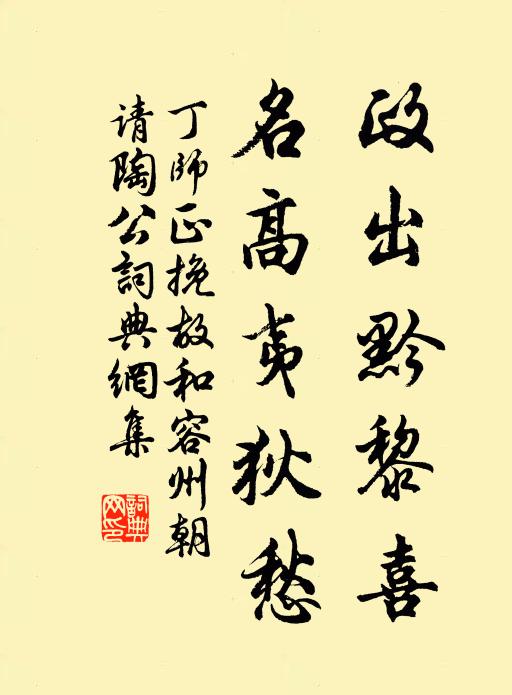 政出黔黎喜
名高夷狄愁
丁師正挽故和容州朝
请陶公詞典網集
詞典
网印